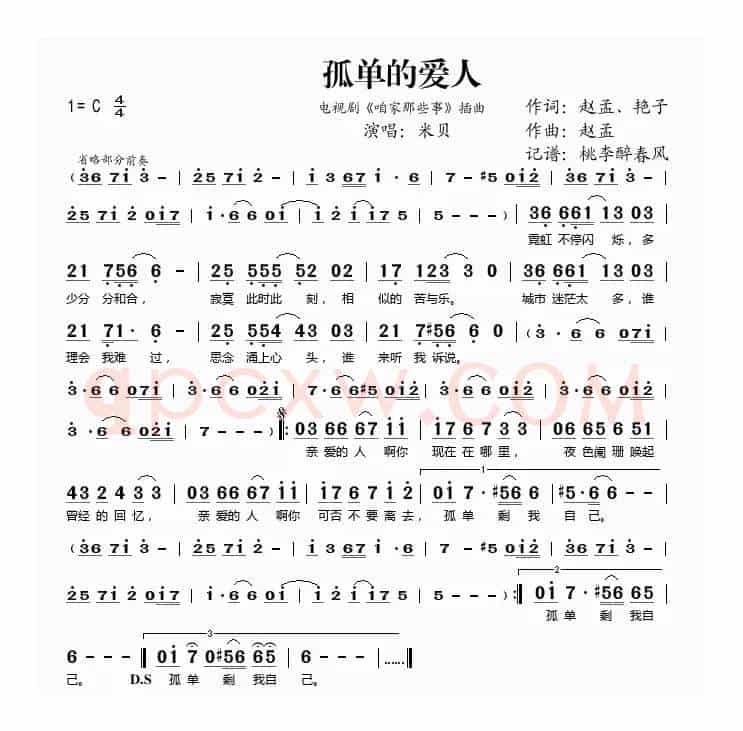 孤单的爱人
1= C 4/4
电视剧《咱家那些事》插曲
作词：赵孟、艳子
演唱：米贝
作曲：赵孟
记谱：桃李醉春风
省略部分前奏
( 36 7i 3 - | 25 7i 2 - | 36 7i i · 6 | 7 - #5 0i2 | 36 7i 3 - |
25 7i 2 0i7 | i · 6 6 0i | i · 2 i i7 5 | 5 - - - ) | 36 661 13 03 |
霓虹 不停闪 烁，多
21 756 6 - | 25 555 52 02 | 17 123 3 0 | 36 661 13 03 |
少分 分和合， 寂寞 此时此 刻，相 似的 苦与乐。 城市 迷茫太 多，谁
21 71· 6 - | 25 554 43 03 | 21 7#56 6 0 | (3 · 6 6 07i |
理会 我难 过， 思念 涌上心 头，谁 来听 我 诉说。
3 · 6 6 07i | 3 · 6 6 02i | 7 · 6 6#5 0i2 | 3 · 6 6 07i |
3 · 6 6 02i | 7 - - - ) 𝄋 ‖: 03 66 67 ii | 17 61 23 3 | 06 65 651 |
亲 爱的 人 啊你 现在 在 哪 里， 夜 色阑 珊 唤起
43 2 43 3 | 03 66 67 ii | 17 67 i2 | 1 0i 7 · #56 6 | #5 · 6 6 0 |
曾经 的 回 忆， 亲 爱的 人 啊你 可否 不 要 离 去， 孤 单 剩 我 自 己。
(36 7i 3 - | 25 7i 2 - | 36 7i i · 6 | 7 - #5 0i2 | 36 7i 3 - |
25 7i 2 0i7 | i · 6 6 0i | i · 2 i i7 5 | 5 - - - ) :‖ 2 0i 7 · #56 65 |
孤 单 剩 我自
6 - - - ‖ 3 0i 7 0#56 65 | 6 - - - |......‖
己。 D.S 孤 单 剩 我自 己。
qpcxw.COM